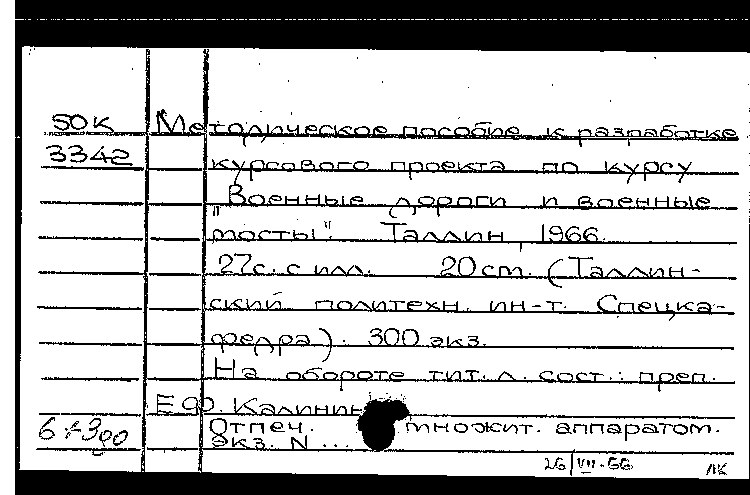 50К Методическое пособие к разработке
3342 курсового проекта по курсу
"Военные дороги и военные
мосты". Таллин, 1966.
27с. с илл. 20 cm. (Таллин-
ский политехн. ин-т. Спецка-
федра). 300 экз.
На обороте тит. л. сост.: преп.
Е.Ф. Калинин
Отпеч. множит. аппаратом.
экз. N ...
26/VII-66 ЛК